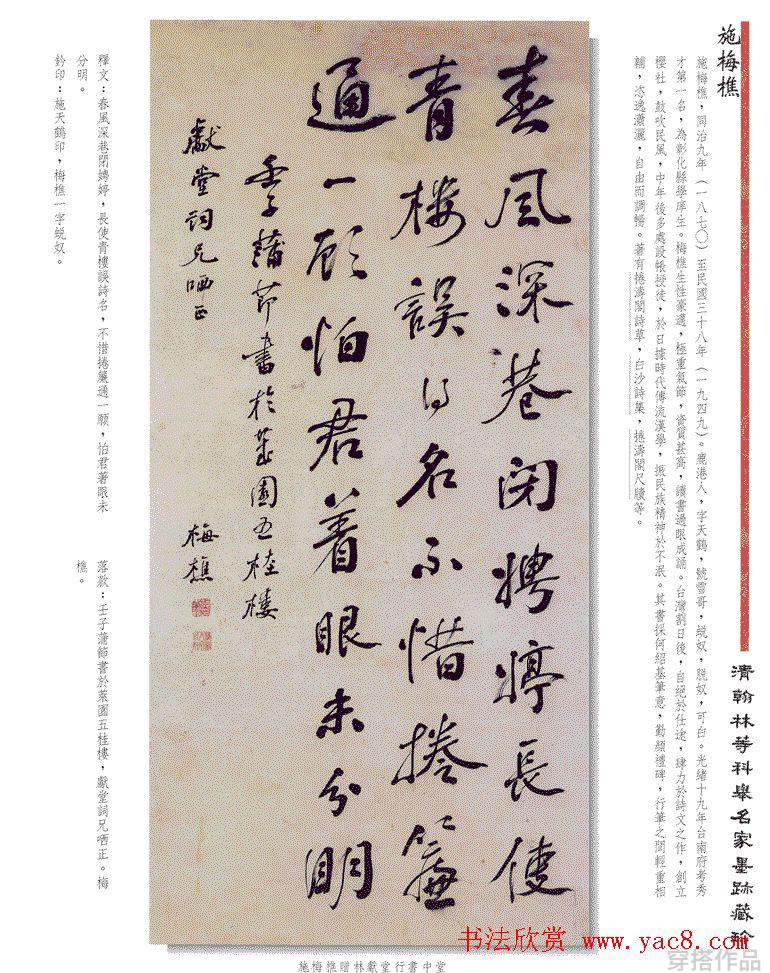 施梅樵
施梅樵，同治九年（一八七〇）至民國三十八年（一九四九）。鹿港人，字天鶴，號雪哥，蛻奴，脱奴，可白。光緒十九年台南府考秀
才第一名，為彰化縣學庠生。梅樵生性豪邁，極重氣節，資質甚高，讀書過眼成誦。台灣割日後，自絕於仕途，肆力於詩文之作，創立
櫻社，鼓吹民風，中年後多處設帳授徒，於日據時代傳流漢學，振民族精神於不泯。其書採何紹基筆意，勤顏禮碑，行筆之間輕重相
輔，恣逸瀟灑，自由而調暢。著有捲濤閣詩草，白沙詩集，捲濤閣尺牘等。
清翰林等科舉名家墨跡藏珍
春風深巷閉娉婷長使
青樓誤得名不惜捲簾
通一顧怕君着眼未分明
壬子蒲節書於萊園五桂樓
獻堂詞兄哂正
梅樵
釋文：春風深巷閉娉婷，長使青樓誤詩名，不惜捲簾通一願，怕君著眼未
分明。
鈐印：施天鶴印，梅樵一字蛻奴。
落款：壬子蒲節書於萊園五桂樓，獻堂詞兄哂正。梅
樵。
施梅樵贈林獻堂行書中堂
书法欣赏 www.yac8.com
穿搭作品